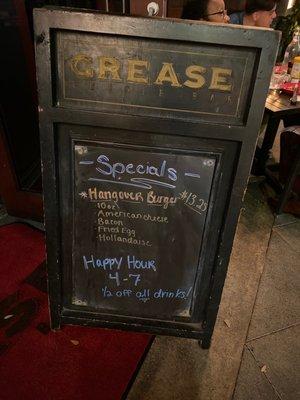 GREASE
- Specials -
*Hangover Burger
-10oz
-American cheese
-Bacon
-Fried Egg
-Hollandaise
Happy Hour
4-7
1/2 off all drinks!